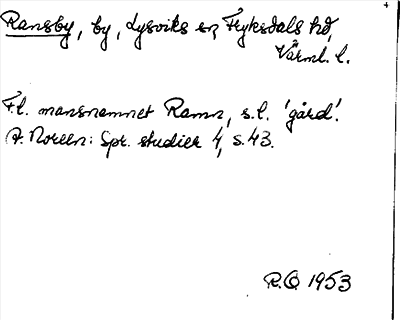 Ransby, by, Lysviks sn, Fryksdals hd,
Värml. l.
F.l. mansnamnet Ramn, s.l. 'gård'.
A. Noreen: Spr. studier 4, s. 43.
R.O. 1953